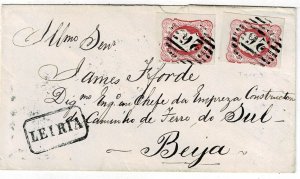 Illmo Senr
James Forde
Digmo Engo em Chefe da Empreza Constructora
Caminho de Ferro do Sul
LEIRIA
Beija